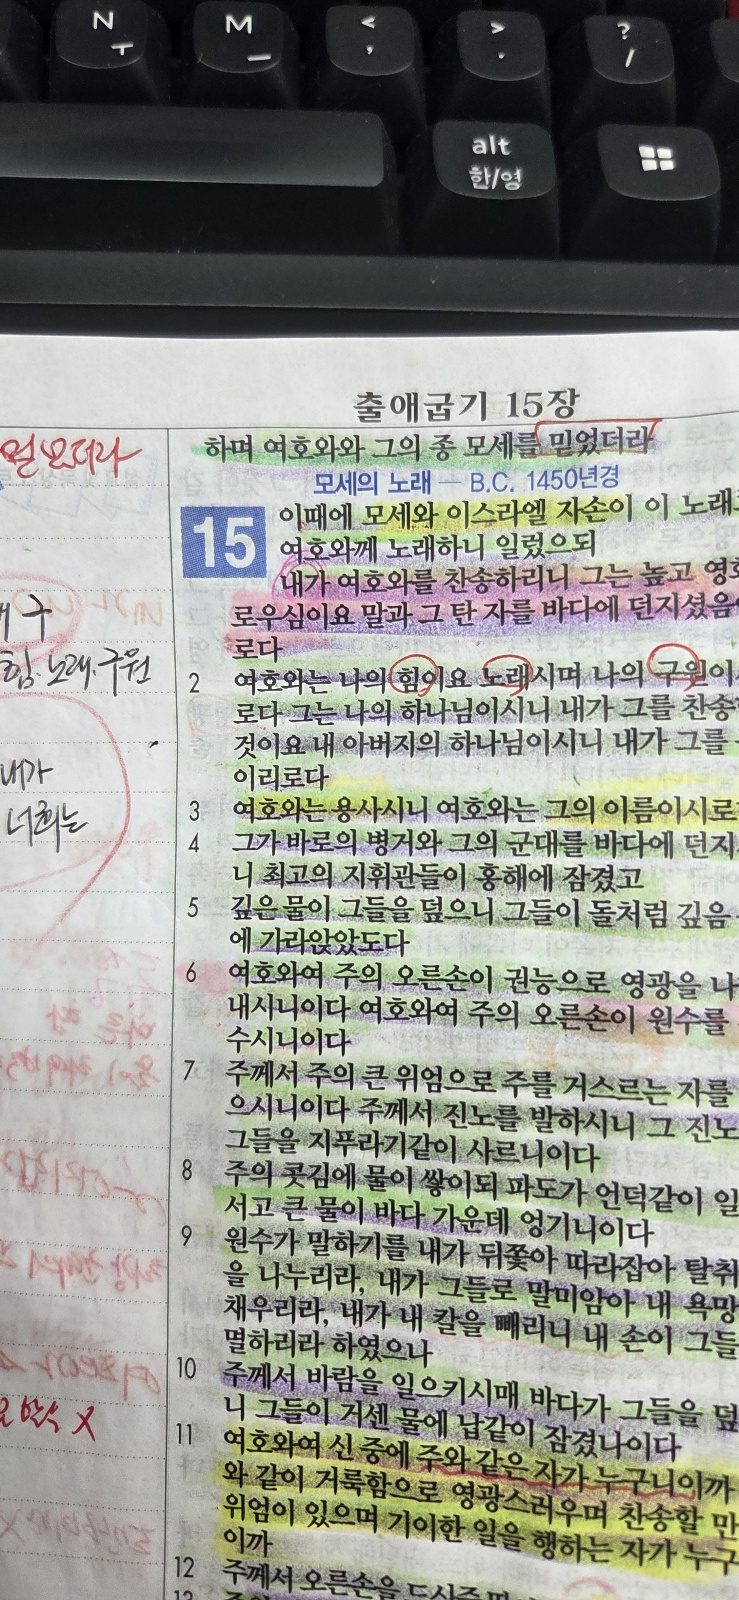 N ㅜ
M ㅡ
< ,
> .
? /
alt
한/영
출애굽기 15장
하며 여호와와 그의 종 모세를 믿었더라
모세의 노래 — B.C. 1450년경
15 이때에 모세와 이스라엘 자손이 이 노래
여호와께 노래하니 일렀으되
내가 여호와를 찬송하리니 그는 높고 영
로우심이요 말과 그 탄 자를 바다에 던지셨음
로다
2 여호와는 나의 힘이요 노래시며 나의 구원이
로다 그는 나의 하나님이시니 내가 그를 찬송
것이요 내 아버지의 하나님이시니 내가 그를
이리로다
3 여호와는 용사시니 여호와는 그의 이름이시로
4 그가 바로의 병거와 그의 군대를 바다에 던지
니 최고의 지휘관들이 홍해에 잠겼고
5 깊은 물이 그들을 덮으니 그들이 돌처럼 깊음
에 가라앉았도다
6 여호와여 주의 오른손이 권능으로 영광을 나
내시니이다 여호와여 주의 오른손이 원수를
수시니이다
7 주께서 주의 큰 위엄으로 주를 거스르는 자를
으시니이다 주께서 진노를 발하시니 그 진노
그들을 지푸라기같이 사르니이다
8 주의 콧김에 물이 쌓이되 파도가 언덕같이 일
서고 큰 물이 바다 가운데 엉기니이다
9 원수가 말하기를 내가 뒤쫓아 따라잡아 탈취
을 나누리라, 내가 그들로 말미암아 내 욕망
채우리라, 내가 내 칼을 빼리니 내 손이 그들
멸하리라 하였으나
10 주께서 바람을 일으키시매 바다가 그들을 덮
니 그들이 거센 물에 납같이 잠겼나이다
11 여호와여 신 중에 주와 같은 자가 누구니이까
와 같이 거룩함으로 영광스러우며 찬송할 만
위엄이 있으며 기이한 일을 행하는 자가 누구
이까
12 주께서 오른손을 드신즉
13
힘. 노래. 구원
내가
너희는